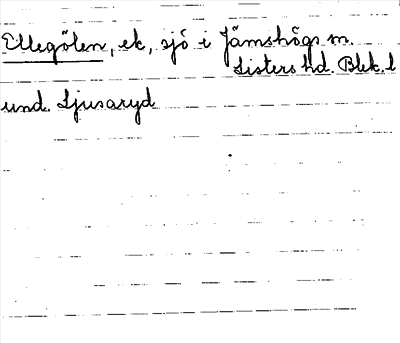 Ellegölen, ek, sjö i Jämshögs sn.
Listers hd. Blek. l
und. Ljusaryd